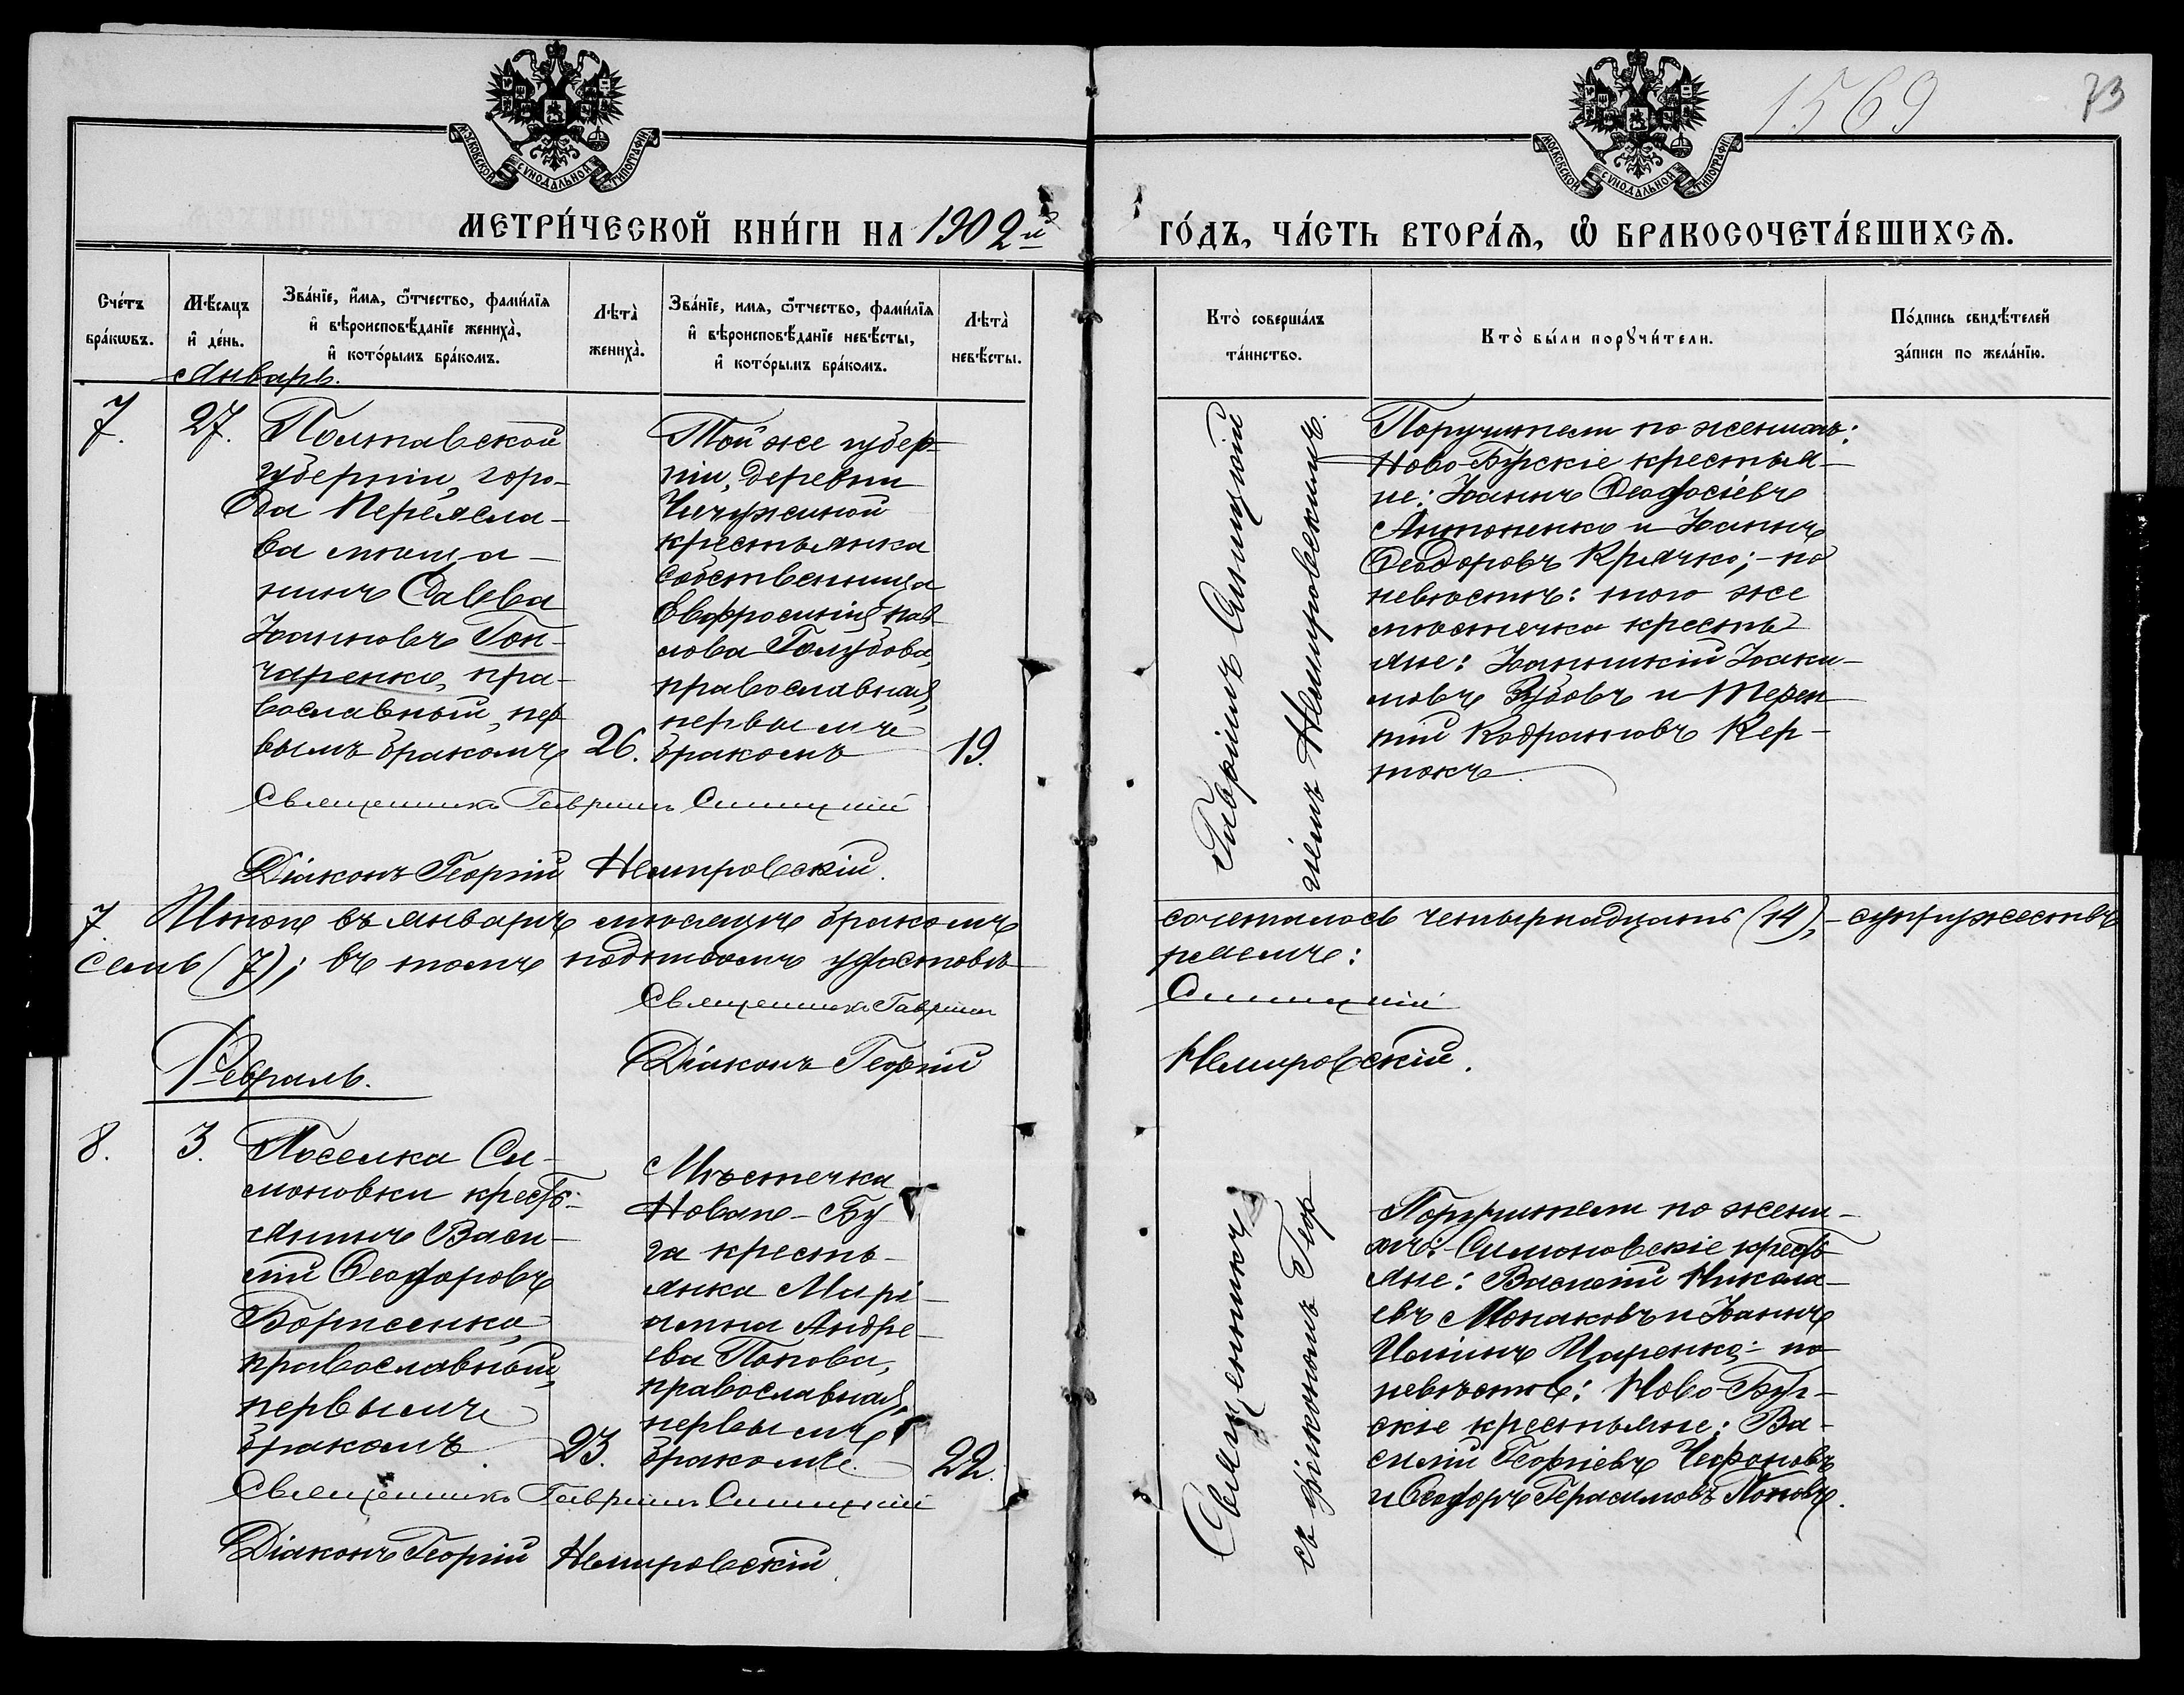 1569
73
МОСКОВСКОЙ СУНОДАЛЬНОЙ ТИПОГРАФІИ
МОСКОВСКОЙ СУНОДАЛЬНОЙ ТИПОГРАФІИ
МЕТРИ́ЧЕСКОЙ КНИ́ГИ НА 1902й
ГО́ДЪ, ЧА́СТЬ ВТОРА́Ѧ, Ѽ БРАКОСОЧЕТА́ВШИХСѦ.
Сче́тъ
бра́кѡвъ.
Мѣ́сяцъ
и҆ де́нь.
Зва́нїе, и҆́мѧ, ѻ҆́тчество, фами́лїѧ
и҆ вѣроисповѣ́данїе жениха̀,
и҆ кото́рымъ бра́комъ.
Лѣта̀
жениха̀.
Зва́нїе, имѧ, ѻ҆́тчество, фами́лїѧ
и҆ вѣроисповѣ́данїе невѣ́сты,
и҆ кото́рымъ бра́комъ.
Лѣта̀
невѣ́сты.
Кто̀ соверша́лъ
та́инство.
Кто̀ бы́ли порꙋчи́тели.
По́дпись свидѣ́телей
за́писи по жела́нїю.
Январь.
7.
27.
Полтавской
губерніи, горо-
да Переясла-
ва мѣща-
нинъ Савва
Іоанновъ Гон-
чаренко, пра-
вославный, пер
вымъ бракомъ
26.
Той же губер-
ніи, деревни
крестьянка
собственница
Евфросинія Пав-
лова Голубова,
православная,
первымъ
бракомъ
19.
Гавріилъ Синицкій
гіемъ Немировскимъ.
Поручители по женихѣ:
Ново-Бугскіе крестья-
не: Іоаннъ Ѳеодосіевъ
Антоненко и Іоаннъ
Ѳеодоровъ Крячко; - по
невѣстѣ: того же
мѣстечка кресть
яне: Іоанникій Іоаки-
мовъ Зубовъ и Терен
тій Кодратовъ Кер-
токъ.
Священникъ Гавріилъ Синицкій
Діаконъ Георгій Немировскій.
7. Итого въ январѣ мѣсяцѣ бракомъ
сочеталось четырнадцать (14), - супружествъ
семь (7); въ томъ подписомъ удостовѣ
ряемъ:
Священникъ Гавріилъ
Синицкій
Діаконъ Георгій
Немировскій.
Февраль.
8.
3.
Поселка Си-
моновки кресть-
янинъ Васи-
лій Ѳеодоровъ
Борисенко,
православный,
первымъ
бракомъ.
23.
Мѣстечка
Новаго-Бу
га кресть-
янка Марі-
амна Андре-
ева Попова,
православная,
первымъ
бракомъ.
22.
Священникъ
съ діакономъ Геор
Поручители по жени-
хѣ: Симоновскіе кресть
яне: Василій Никола-
евъ Монаковъ и Іоаннъ
Царенко; - по
невѣстѣ: Ново-Буг-
скіе крестьяне: Ва-
силій Георгіевъ
и Ѳеодоръ Герасимовъ Поповъ.
Священникъ Гавріилъ Синицкій
Діаконъ Георгій Немировскій.